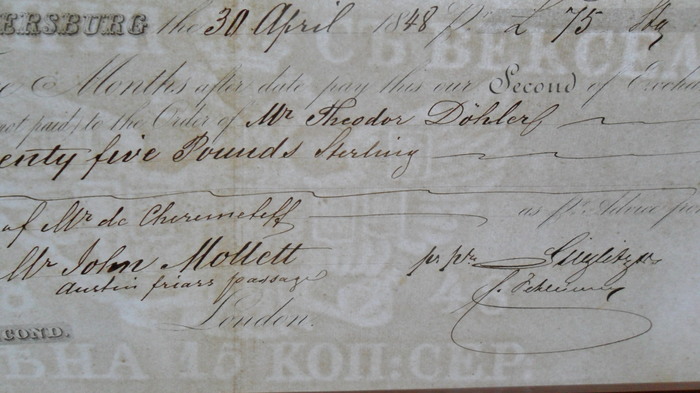 ERSBURG the 30 April 1848 pr £ 75 Stg
Months after date pay this our Second of Excha
not paid) to the Order of Mr Theodor Döhler
enty five Pounds Sterling
of Mr de Cheremeteff as pr Advice
Mr John Mollett pr pr
Austin friars passage
London.
COND.
ВЕКСЕЛ
ЬНА 15 КОП: СЕР.